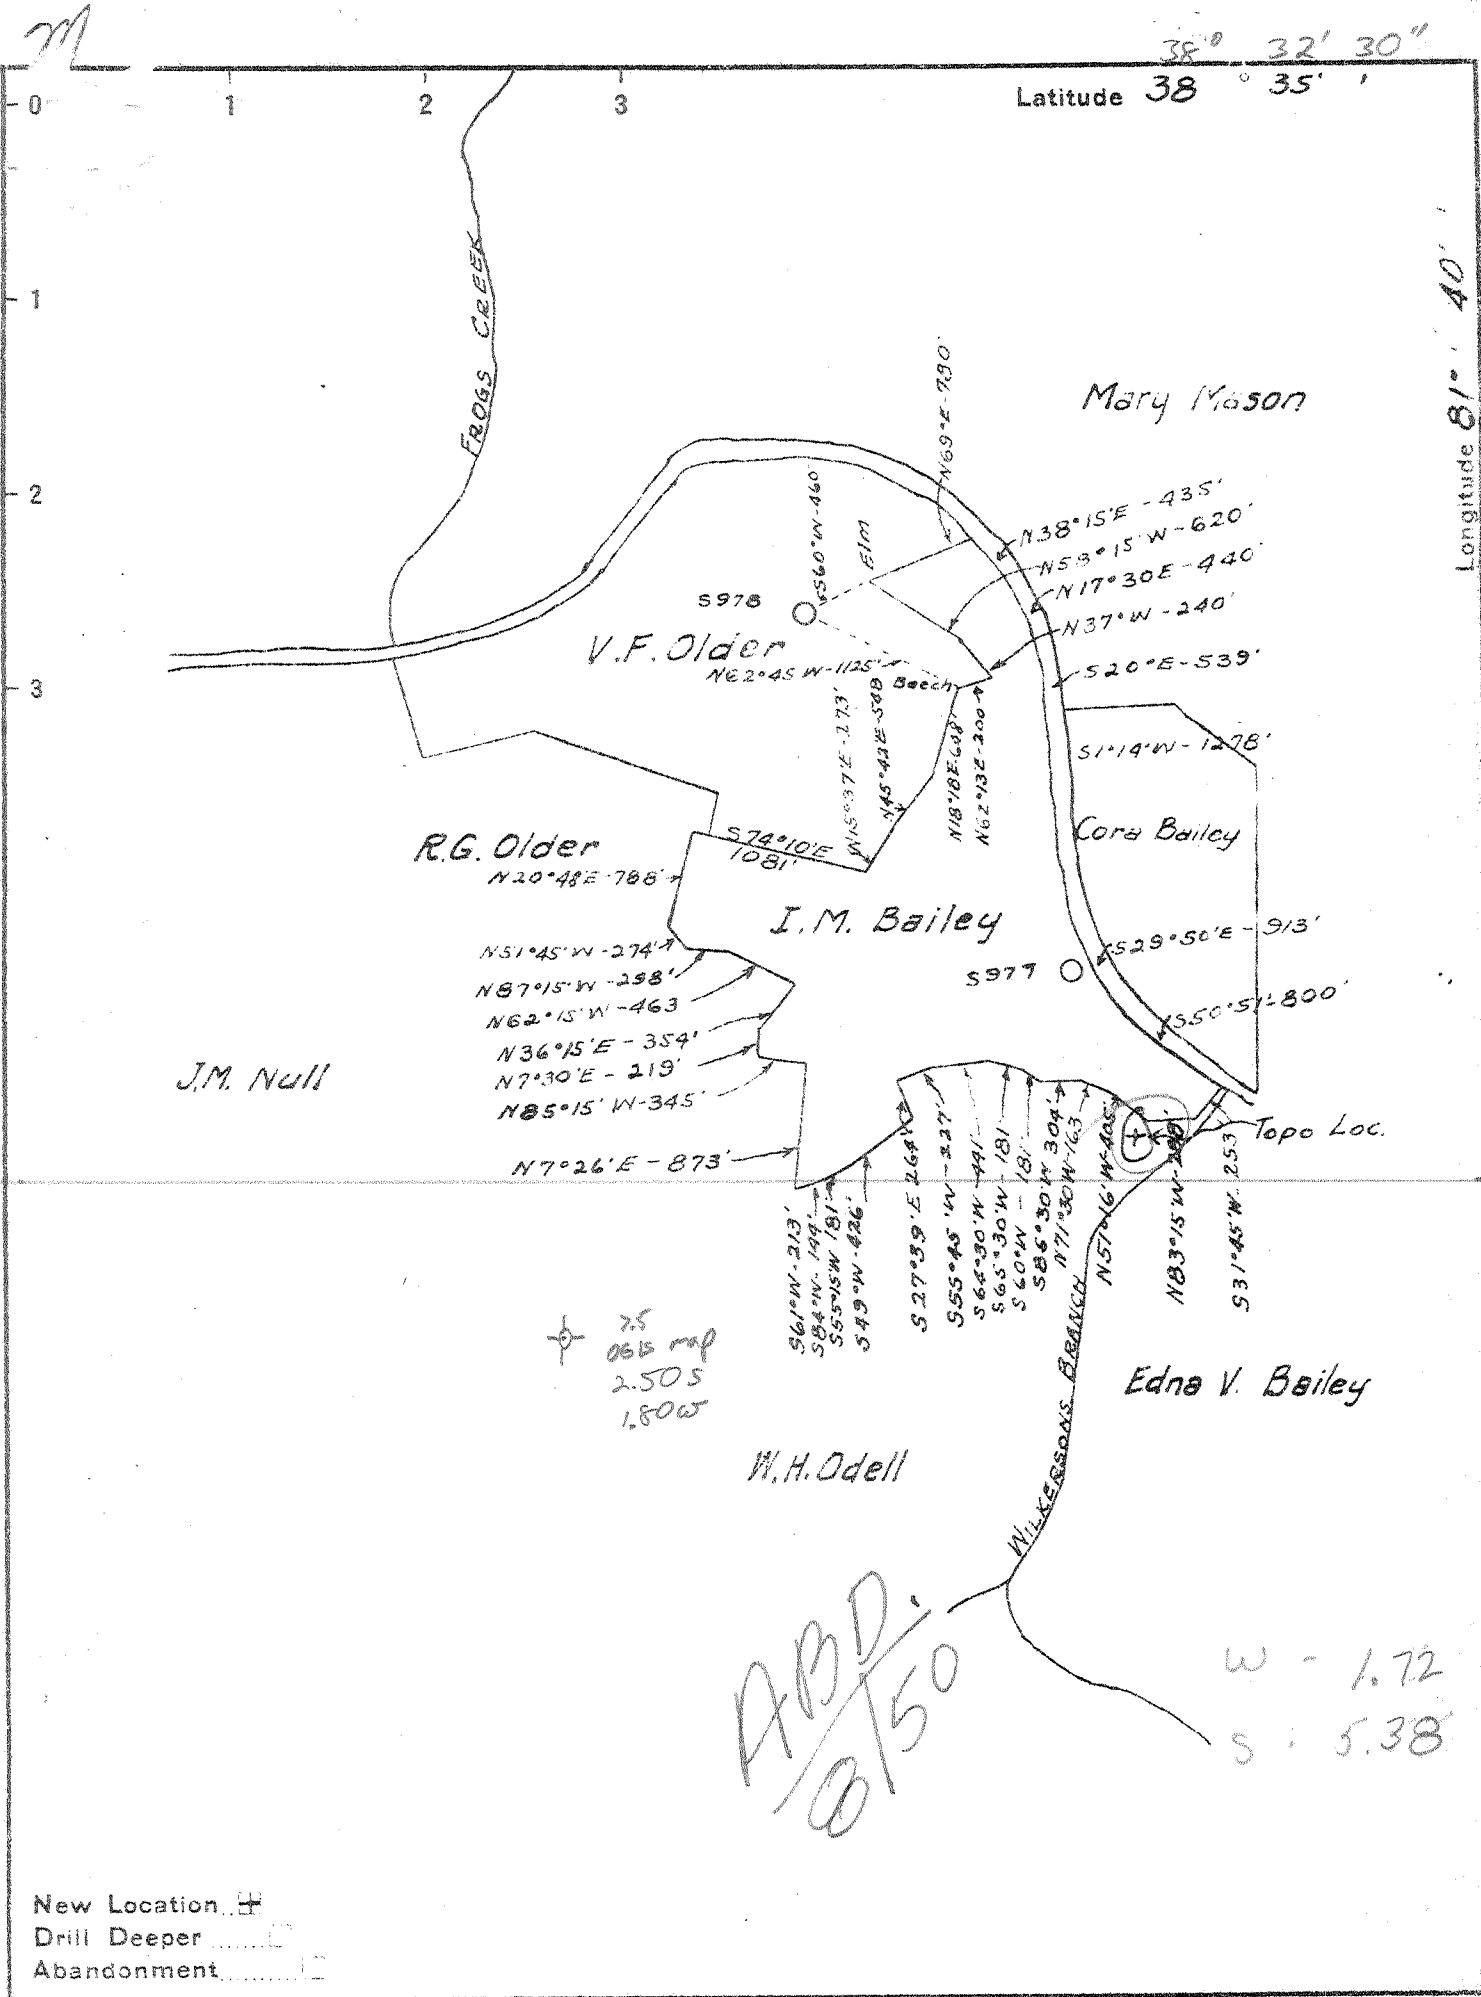 m
38° 32' 30"
Latitude 38° 35'
0 1 2 3
1
2
3
Longitude 81° 40'
FROGS CREEK
Mary Mason
N69°E-790'
S60°W-460'
Elm
N38°15'E-435'
N17°30E-440'
N37°W-240'
S20°E-539'
S978
V.F. Older
N62°45W-1125'
Beech
N45°42'E-548
N18°18E-608'
N62°13E-200
S1°14'W-1278'
Cora Bailey
R.G. Older
S74°10'E
1081'
N20°48E-788'
I.M. Bailey
S977
S29°50'E-913'
S50°51'-800'
N51°45'W-274'
N87°15'W-298'
N62°15'W-463
N36°15'E-354'
N7°30'E-219'
N85°15'W-345'
N7°26'E-873'
J.M. Null
Topo Loc.
S61°W-213'
S84°W-144'
S55°15W 181'
S49°W-426'
S27°39'E 264'
S55°45'W-227'
S64°30'W-441'
S65°30'W-181
S60°W-181'
S86°30'W 304'
N71°30W-163
N51°16'W-405'
N83°15'W
S31°45'W-253
7.5
map
2.50 S
1.80 W
WILKERSONS BRANCH
Edna V. Bailey
W.H. Odell
ABD.
8/50
W - 1.72
S . 5.38
New Location
Drill Deeper
Abandonment